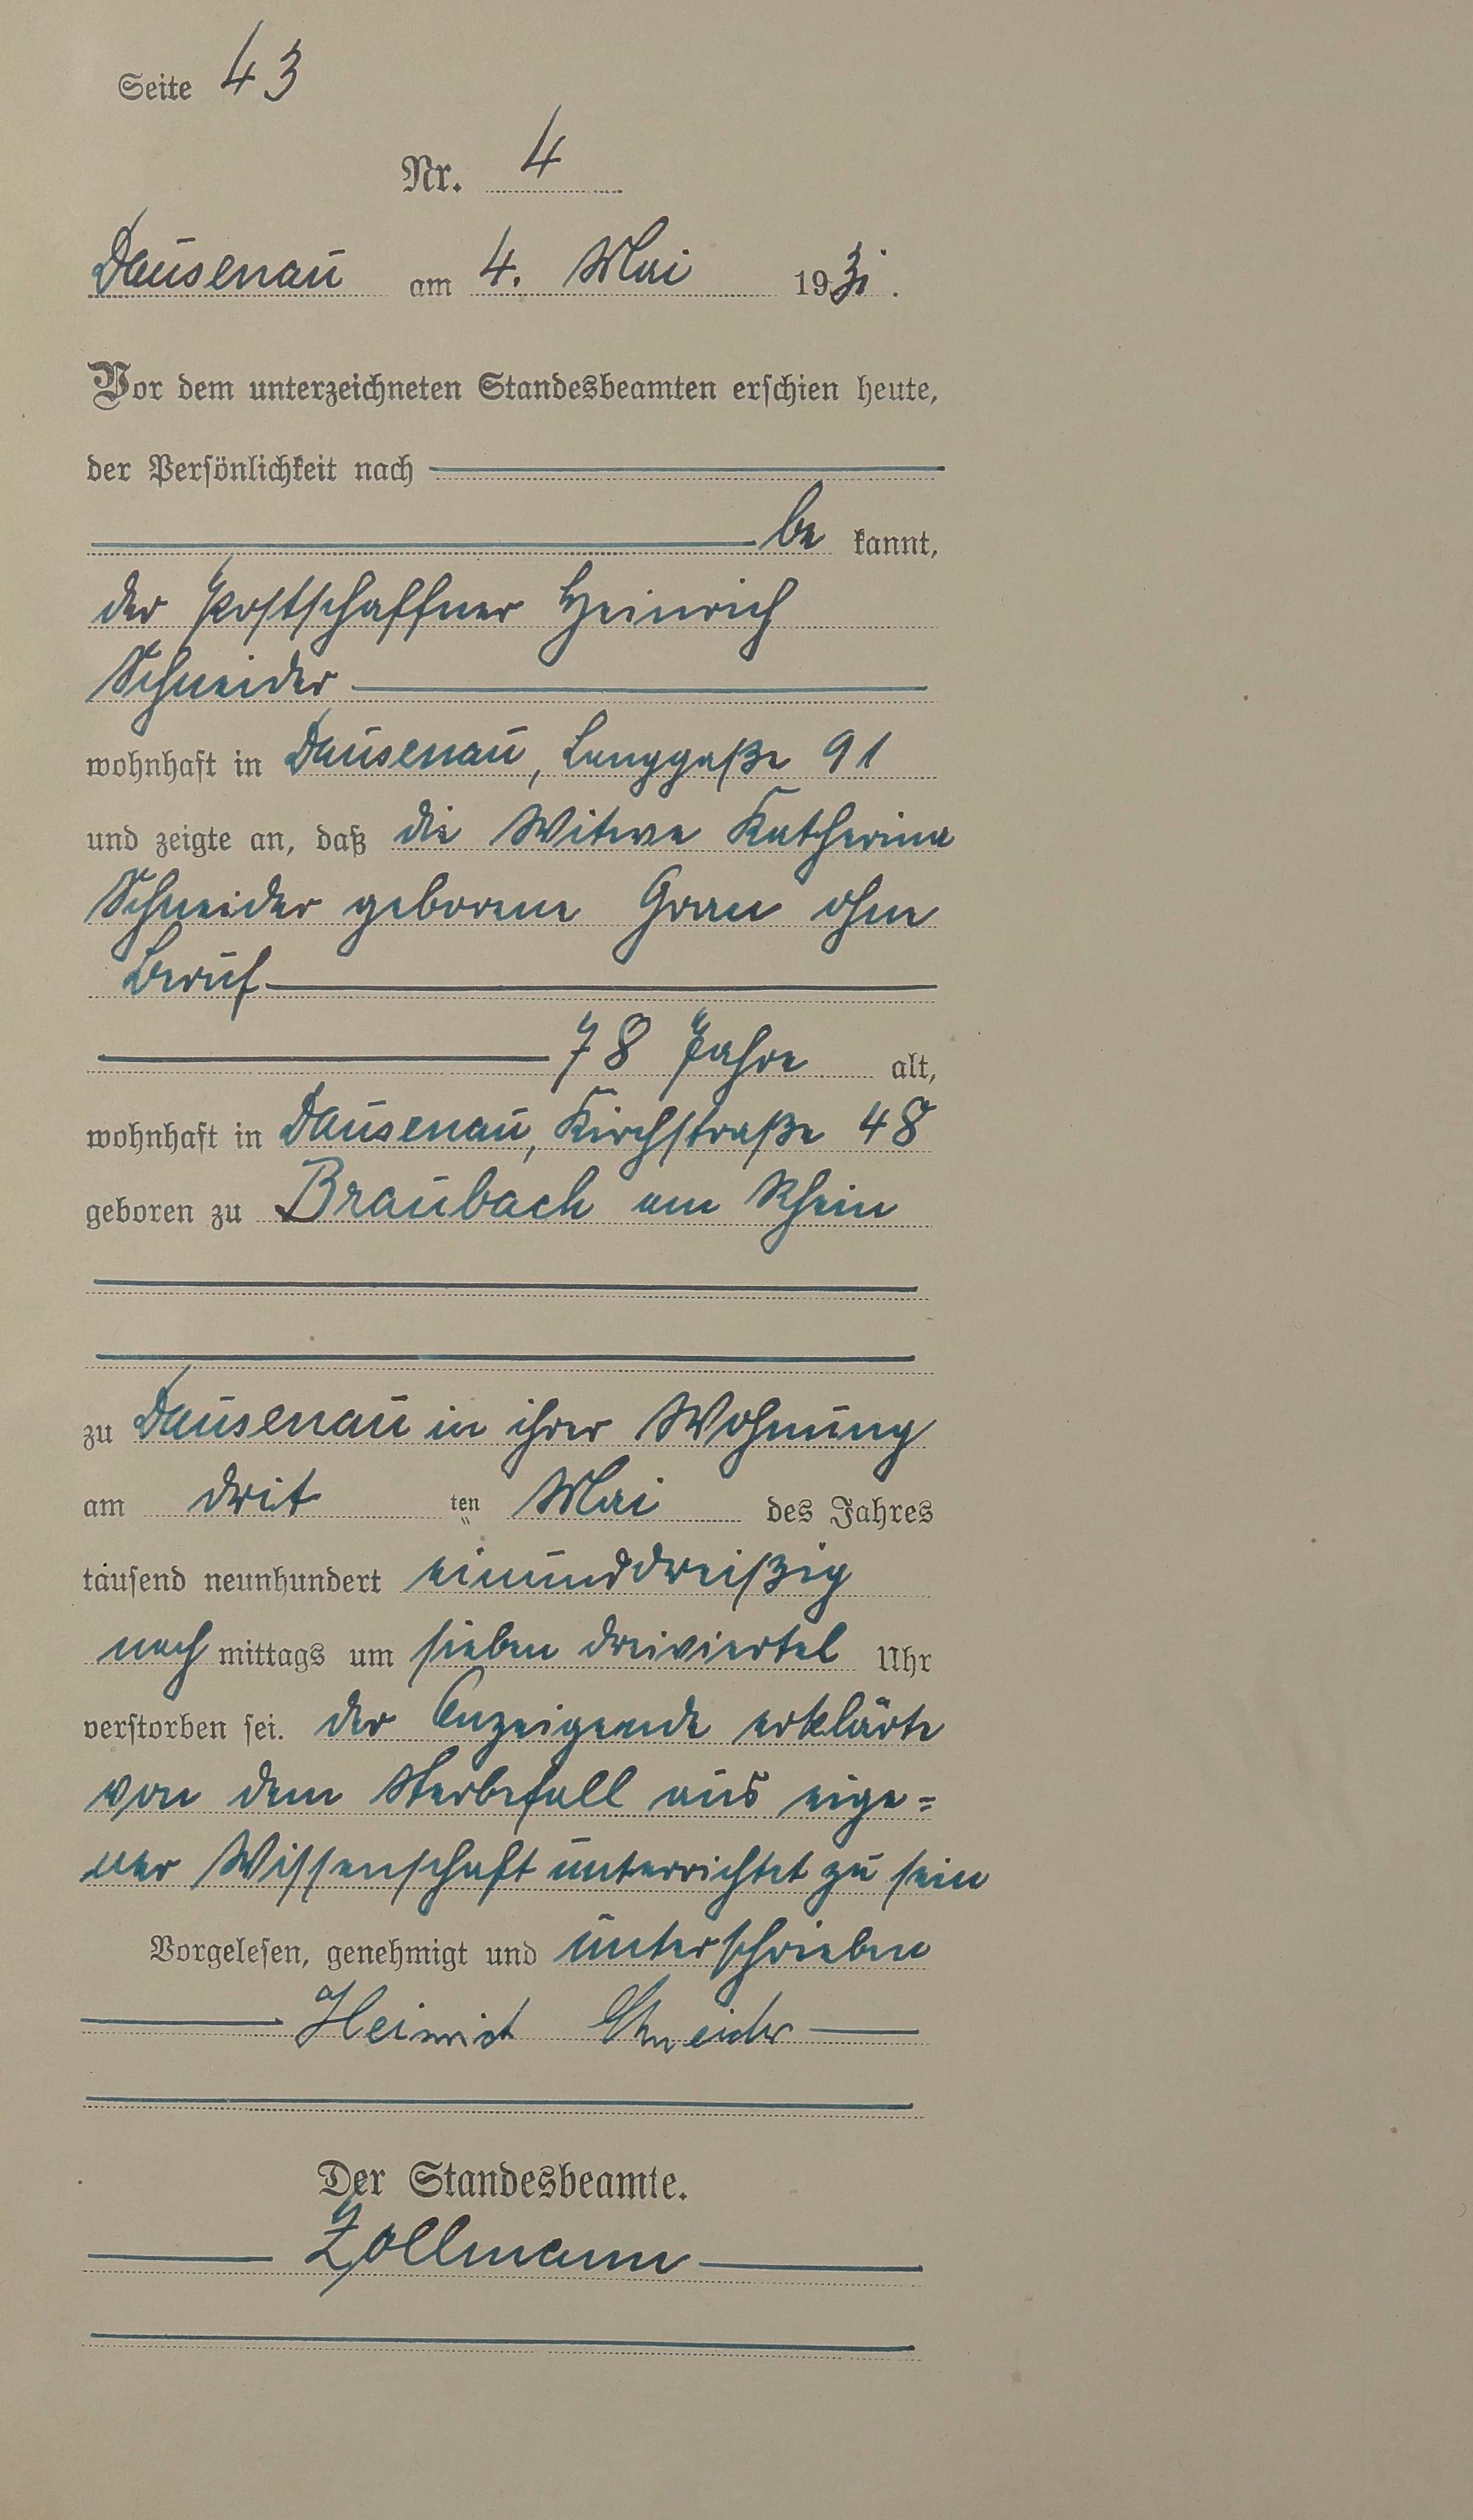 Seite 43
Nr. 4
Dausenau am 4. Mai 1931.
Vor dem unterzeichneten Standesbeamten erschien heute,
der Persönlichkeit nach
be kannt,
der Postschaffner Heinrich
Schneider
wohnhaft in Dausenau, Langgaße 91
und zeigte an, daß die Witwe Katherina
Schneider geborene ohne
Beruf
78 Jahre alt,
wohnhaft in Dausenau, Kirchstraße 48
geboren zu Braubach am Rhein
zu Dausenau in ihrer Wohnung
am drit ten Mai des Jahres
tausend neunhundert einunddreißig
nach mittags um sieben dreiviertel Uhr
verstorben sei. Der Anzeigende erklärte
von dem Sterbefall aus eige=
ner Wissenschaft unterrichtet zu sein
Vorgelesen, genehmigt und unterschrieben
Heinrich Schneider
Der Standesbeamte.
Zollmann